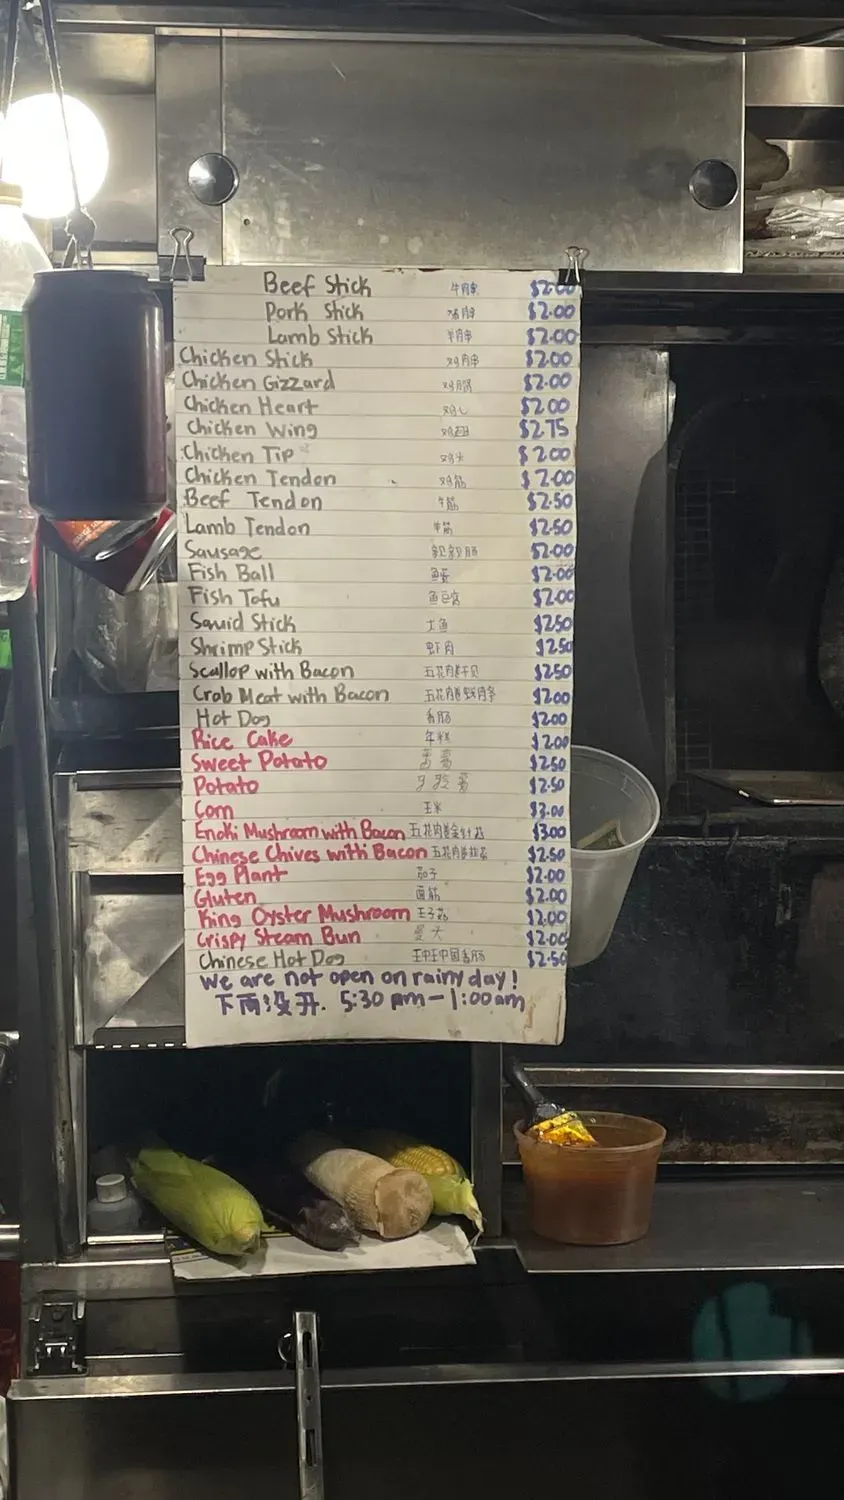 Beef Stick 牛肉串 $2.00
Pork Stick 猪肉串 $2.00
Lamb Stick 羊肉串 $2.00
Chicken Stick 鸡肉串 $2.00
Chicken Gizzard 鸡胗 $2.00
Chicken Heart 鸡心 $2.00
Chicken Wing 鸡翅 $2.75
Chicken Tip $2.00
Chicken Tendon 鸡筋 $2.00
Beef Tendon 牛筋 $2.50
Lamb Tendon $2.50
Sausage $2.00
Fish Ball 鱼蛋 $2.00
Fish Tofu 鱼豆腐 $2.00
Squid Stick $2.50
Shrimp Stick 虾肉 $2.50
Scallop with Bacon 五花肉卷干贝 $2.50
Crab Meat with Bacon $2.00
Hot Dog 香肠 $2.00
Rice Cake 年糕 $2.00
Sweet Potato $2.50
Potato $2.50
Corn 玉米 $3.00
Enoki Mushroom with Bacon 五花肉卷金针菇 $3.00
Chinese Chives with Bacon 五花肉卷韭菜 $2.50
Egg Plant 茄子 $2.00
Gluten 面筋 $2.00
King Oyster Mushroom 王子菇 $2.00
Crispy Steam Bun $2.00
Chinese Hot Dog 王中王中国香肠 $2.50
We are not open on rainy day!
下雨没开. 5:30 pm-1:00am